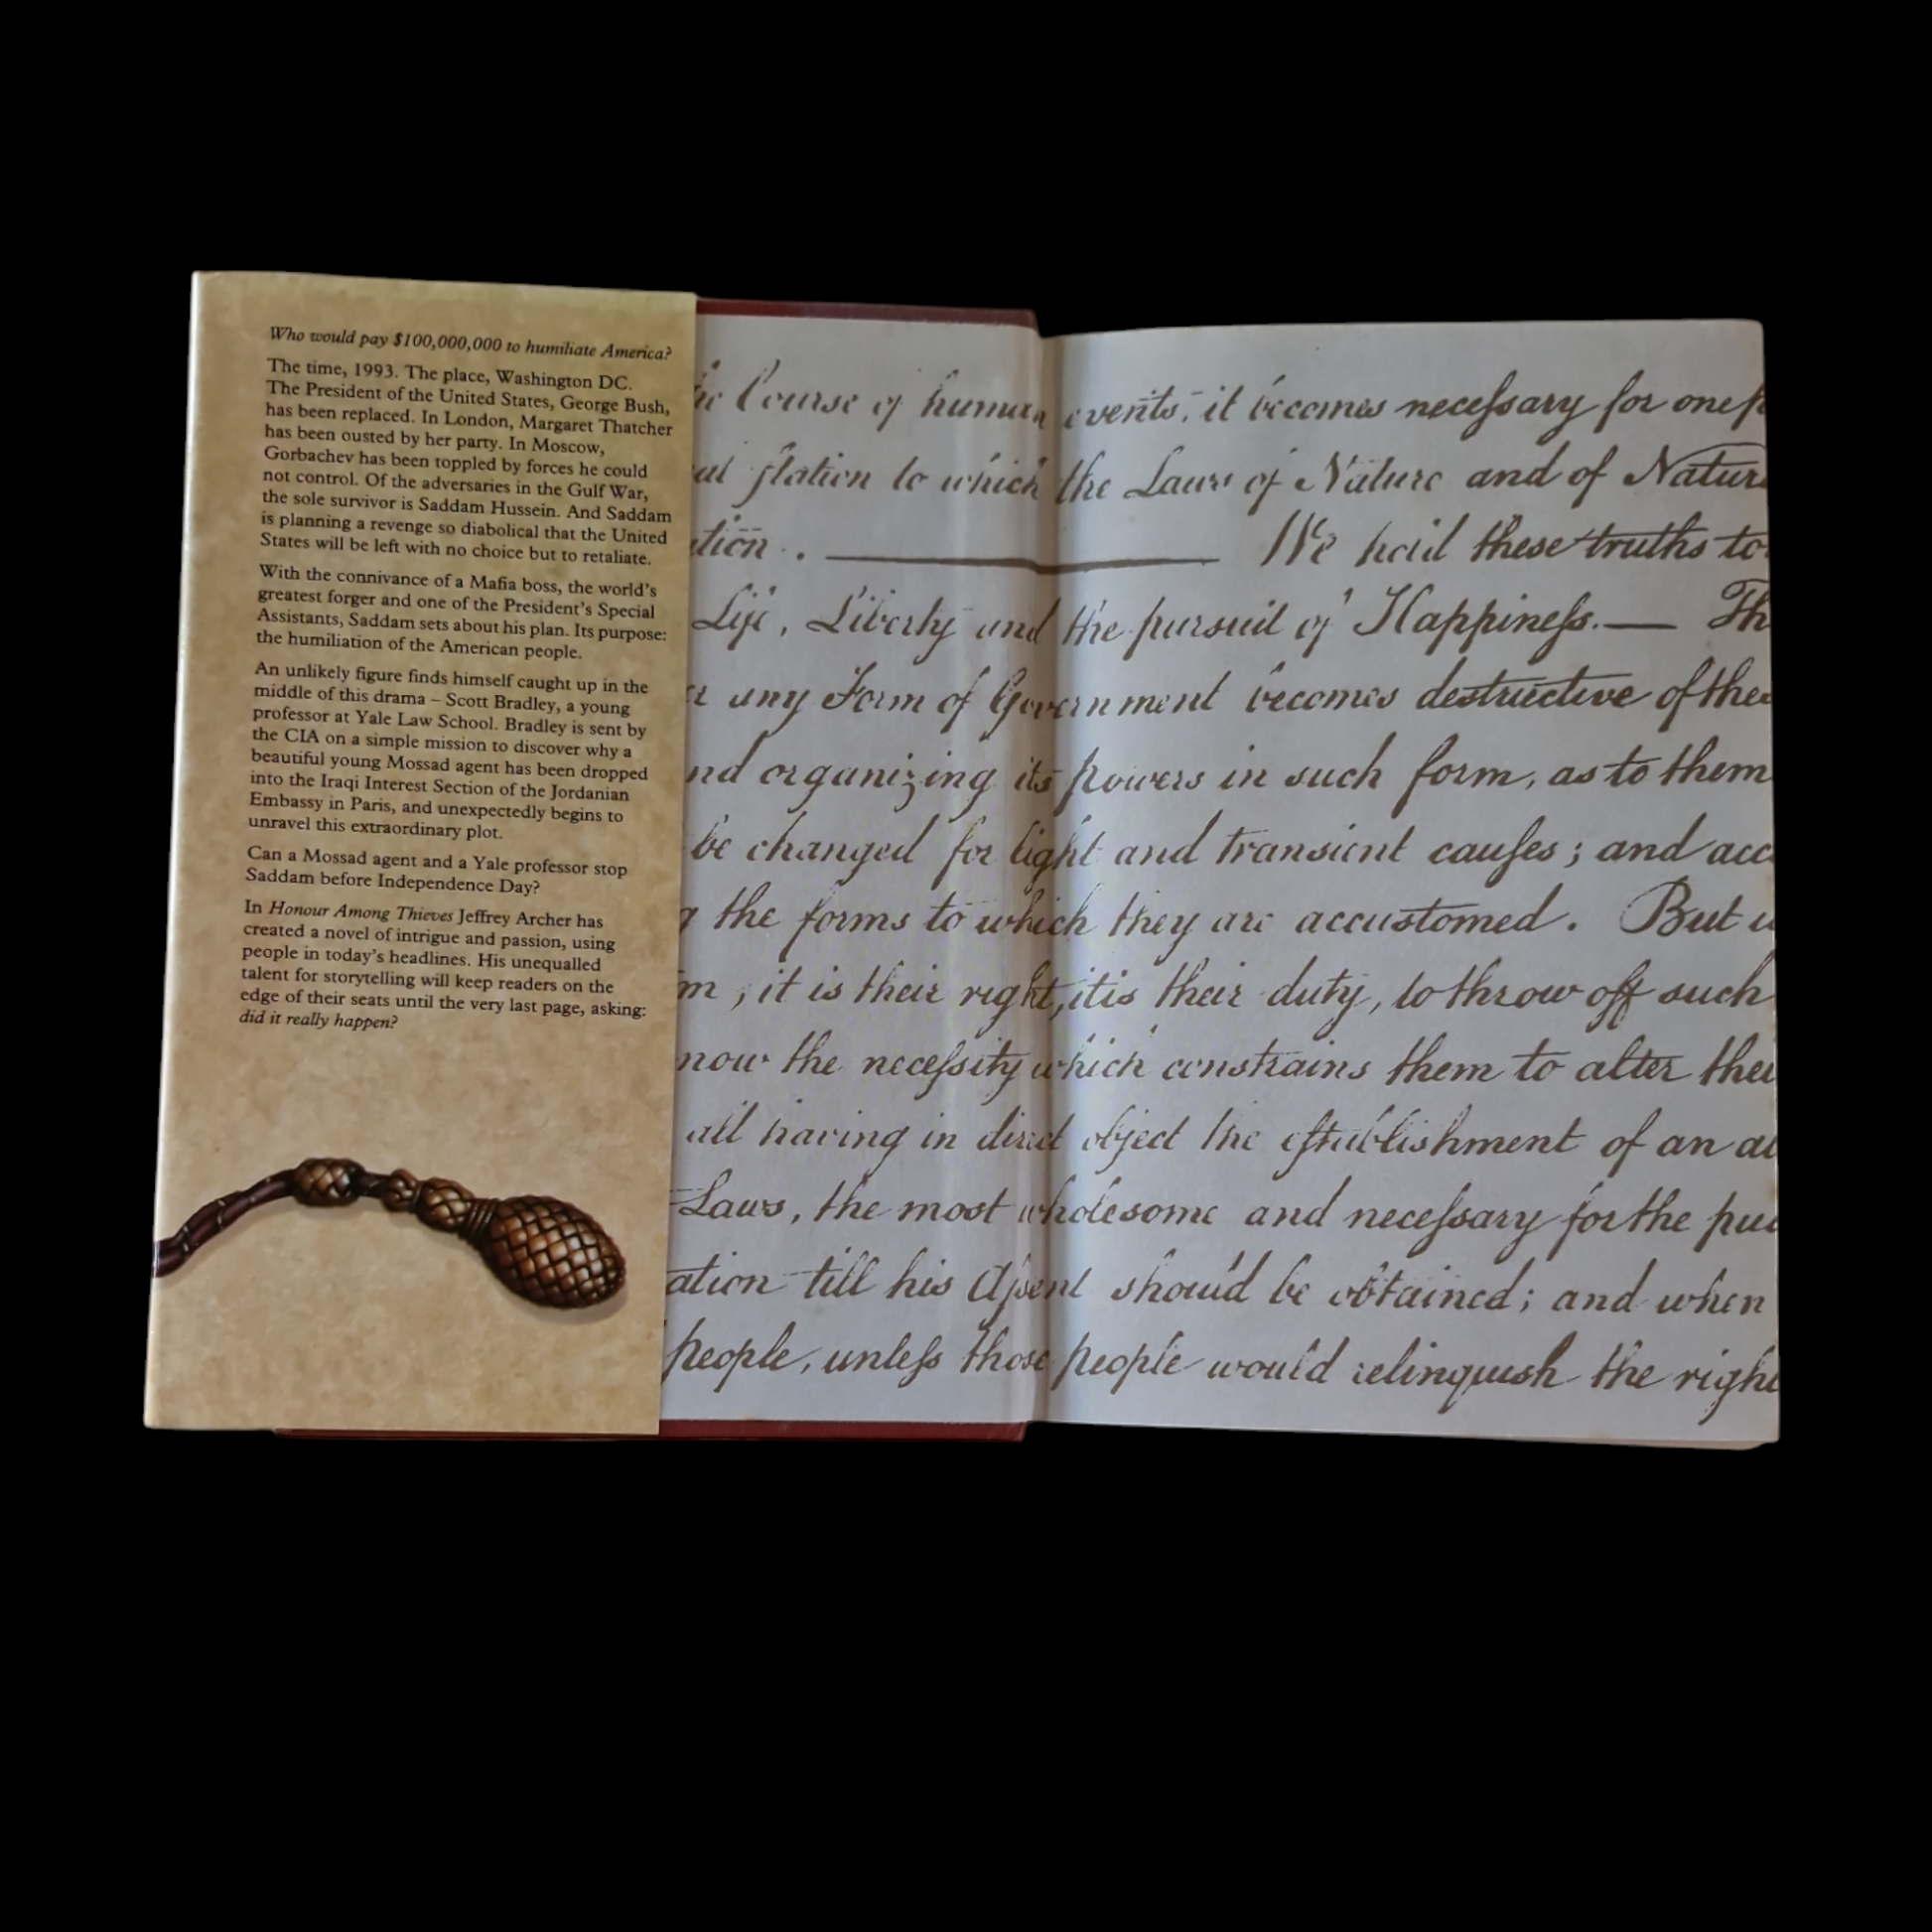 Who would pay $100,000,000 to humiliate America?
The time, 1993. The place, Washington DC.
The President of the United States, George Bush,
has been replaced. In London, Margaret Thatcher
has been ousted by her party. In Moscow,
Gorbachev has been toppled by forces he could
not control. Of the adversaries in the Gulf War,
the sole survivor is Saddam Hussein. And Saddam
is planning a revenge so diabolical that the United
States will be left with no choice but to retaliate.
With the connivance of a Mafia boss, the world's
greatest forger and one of the President's Special
Assistants, Saddam sets about his plan. Its purpose:
the humiliation of the American people.
An unlikely figure finds himself caught up in the
middle of this drama – Scott Bradley, a young
professor at Yale Law School. Bradley is sent by
the CIA on a simple mission to discover why a
beautiful young Mossad agent has been dropped
into the Iraqi Interest Section of the Jordanian
Embassy in Paris, and unexpectedly begins to
unravel this extraordinary plot.
Can a Mossad agent and a Yale professor stop
Saddam before Independence Day?
In Honour Among Thieves Jeffrey Archer has
created a novel of intrigue and passion, using
people in today's headlines. His unequalled
talent for storytelling will keep readers on the
edge of their seats until the very last page, asking:
did it really happen?
Course of human events, it becomes neceſsary for one
ſtation to which the Laws of Nature and of Natur
ation. — We hold these truths to
Life, Liberty and the pursuit of Happineſs. — Th
any Form of Government becomes destructive of the
nd organizing its powers in such form, as to them
be changed for light and transient cauſes; and acc
g the forms to which they are accustomed. But
m, it is their right, it is their duty, to throw off such
now the neceſsity which constrains them to alter thei
all having in direct object the eſtabliſhment of an a
Laws, the most wholesome and neceſsary for the pu
ation till his Aſsent should be obtained; and when
people, unleſs those people would relinquish the right